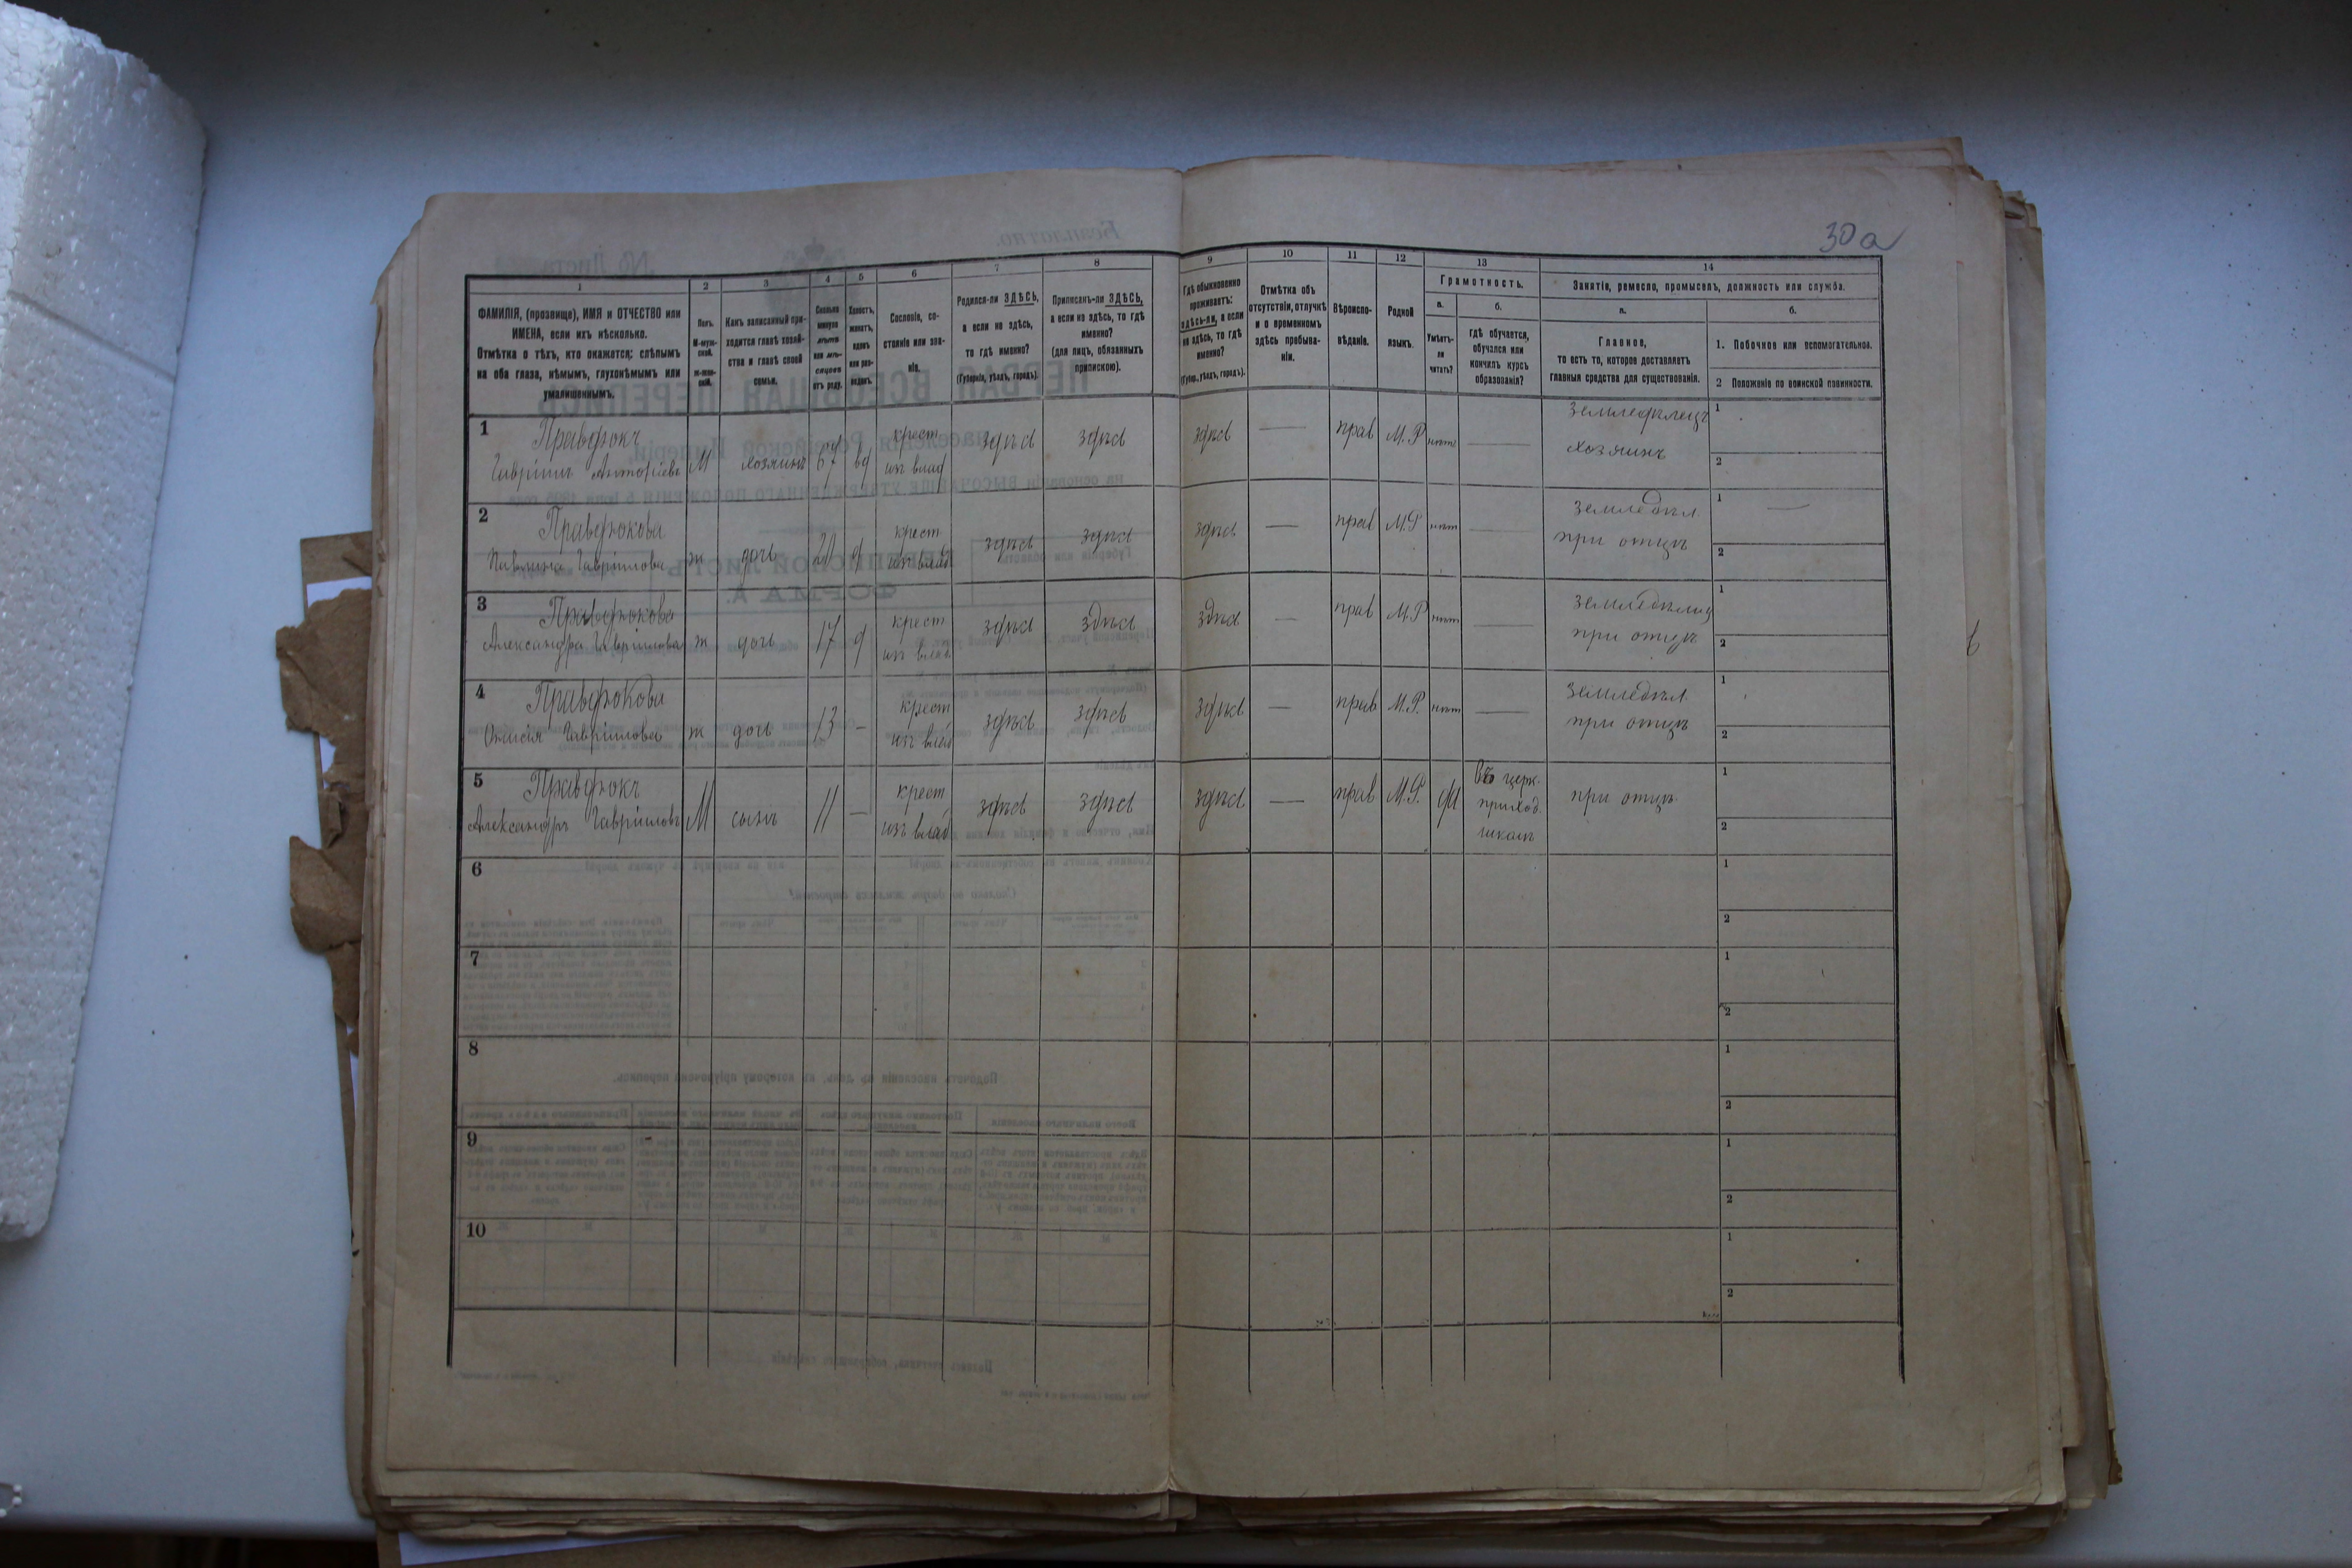 30 а
1 2 3 4 5 6 7 8 9 10 11 12 13 14
ФАМИЛІЯ, (прозвище), ИМЯ и ОТЧЕСТВО или
ИМЕНА, если ихъ нѣсколько.
Отмѣтка о тѣхъ, кто окажется: слѣпымъ
на оба глаза, нѣмымъ, глухонѣмымъ или
умалишеннымъ.
Полъ.
М-муж-
ской.
ж-жен-
скій.
Какъ записанный при-
ходится главѣ хозяй-
ства и главѣ своей
семьи.
Сколько
минуло
лѣтъ
или мѣ-
сяцевъ
отъ роду.
Холостъ,
женатъ,
вдовъ
или раз-
веденъ.
Сословіе, со-
стояніе или зва-
ніе.
Родился-ли ЗДѢСЬ,
а если не здѣсь,
то гдѣ именно?
(Губернія, уѣздъ, городъ).
Приписанъ-ли ЗДѢСЬ,
а если не здѣсь, то гдѣ
именно?
(для лицъ, обязанныхъ
припискою).
Гдѣ обыкновенно
проживаетъ:
здѣсь-ли, а если
не здѣсь, то гдѣ
именно?
(Губер., уѣздъ, городъ).
Отмѣтка объ
отсутствіи, отлучкѣ
и о временномъ
здѣсь пребыва-
ніи.
Вѣроиспо-
вѣданіе.
Родной
языкъ.
Грамотность.
а.
Умѣетъ-
ли
читать?
б.
гдѣ обучается,
обучался или
кончилъ курсъ
образованія?
Занятіе, ремесло, промыселъ, должность или служба.
а.
Главное,
то есть то, которое доставляетъ
главныя средства для существованія.
б.
1. Побочное или вспомогательное.
2 Положеніе по воинской повинности.
1 Правдюкъ
Гавріилъ М хозяинъ 67 вд крест здѣсь здѣсь здѣсь — прав М.Р. нѣтъ — Земледѣлецъ 1
изъ влад хозяинъ 2
2 Правдюкова
Павлина Гавріилова ж дочь д крест здѣсь здѣсь здѣсь — прав М.Р. нѣт — Земледѣл 1 —
изъ влад при отцѣ 2
3 Правдюкова
Александра Гавріилова ж дочь 17 д крест здѣсь здѣсь здѣсь — прав М.Р. нѣт — Земледѣлец 1
изъ влад при отцѣ 2
4 Правдюкова
Гавріилова ж дочь 13 — крест здѣсь здѣсь здѣсь — прав М.Р. нѣт — Земледѣл 1
изъ влад при отцѣ 2
5 Правдюкъ
Александръ Гавріиловъ М сынъ 11 — крест здѣсь здѣсь здѣсь — прав М.Р. да Въ церк. при отцѣ 1
изъ влад приход.
школѣ 2
6 1
2
7 1
2
8 1
2
9 1
2
10 1
2